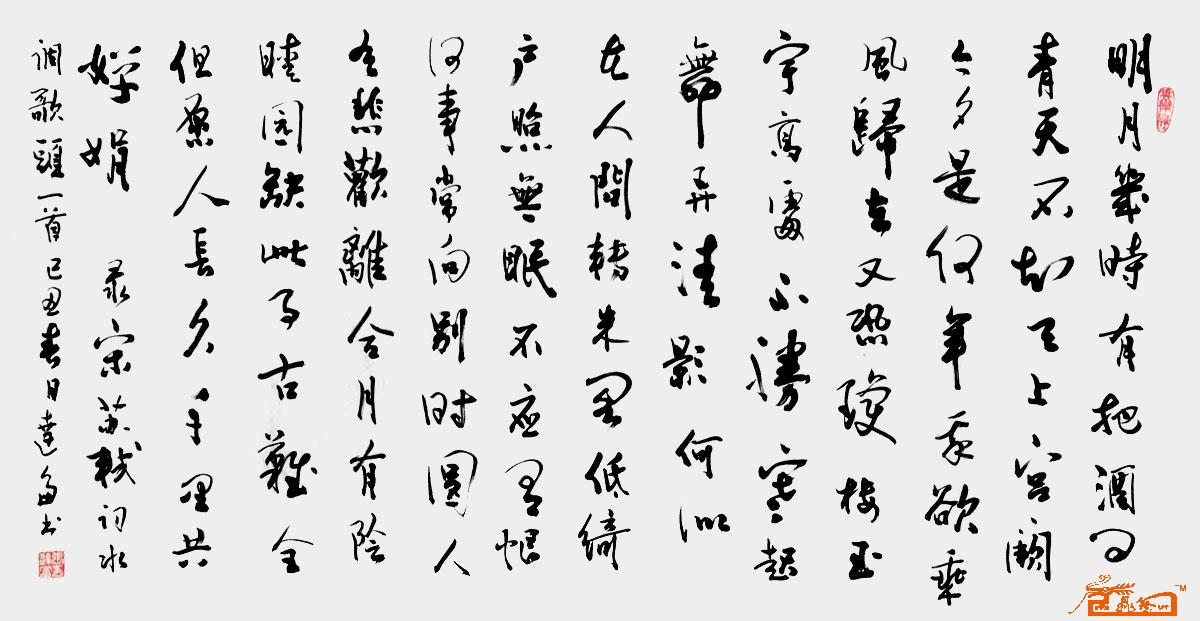 明月幾時有把酒问
青天不知天上宫阙
今夕是何年我欲乘
風歸去又恐瓊楼玉
宇高處不勝寒起
舞弄清影何似
在人間轉朱阁低綺
户照無眠不应有恨
何事常向别时圆人
有悲歡離合月有陰
晴圆缺此事古難全
但愿人長久千里共
嬋娟 录宋苏轼词水
调歌頭一首己丑春日達书